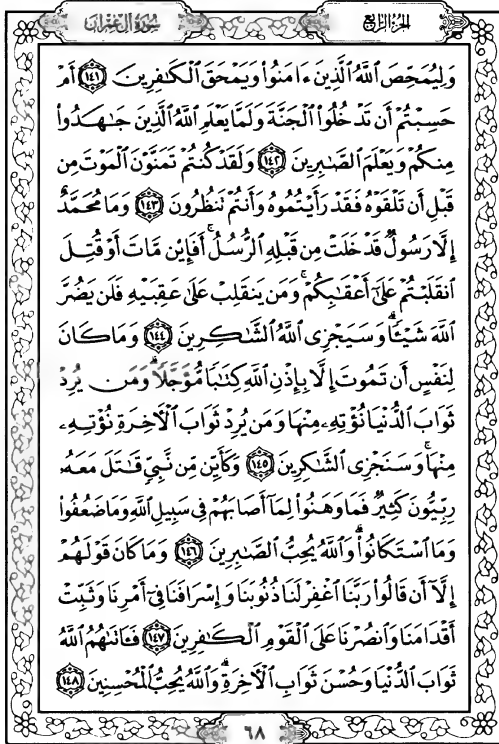 سُورَةُ آلِ عِمْرَان
الجُزْءُ الرَّابِعُ
وَلِيُمَحِّصَ ٱللَّهُ ٱلَّذِينَ ءَامَنُوا۟ وَيَمْحَقَ ٱلْكَـٰفِرِينَ ١٤١ أَمْ
حَسِبْتُمْ أَن تَدْخُلُوا۟ ٱلْجَنَّةَ وَلَمَّا يَعْلَمِ ٱللَّهُ ٱلَّذِينَ جَـٰهَدُوا۟
مِنكُمْ وَيَعْلَمَ ٱلصَّـٰبِرِينَ ١٤٢ وَلَقَدْ كُنتُمْ تَمَنَّوْنَ ٱلْمَوْتَ مِن
قَبْلِ أَن تَلْقَوْهُ فَقَدْ رَأَيْتُمُوهُ وَأَنتُمْ تَنظُرُونَ ١٤٣ وَمَا مُحَمَّدٌ
إِلَّا رَسُولٌ قَدْ خَلَتْ مِن قَبْلِهِ ٱلرُّسُلُ ۚ أَفَإِي۟ن مَّاتَ أَوْ قُتِلَ
ٱنقَلَبْتُمْ عَلَىٰٓ أَعْقَـٰبِكُمْ ۚ وَمَن يَنقَلِبْ عَلَىٰ عَقِبَيْهِ فَلَن يَضُرَّ
ٱللَّهَ شَيْـًٔا ۗ وَسَيَجْزِى ٱللَّهُ ٱلشَّـٰكِرِينَ ١٤٤ وَمَا كَانَ
لِنَفْسٍ أَن تَمُوتَ إِلَّا بِإِذْنِ ٱللَّهِ كِتَـٰبًا مُّؤَجَّلًا ۗ وَمَن يُرِدْ
ثَوَابَ ٱلدُّنْيَا نُؤْتِهِۦ مِنْهَا وَمَن يُرِدْ ثَوَابَ ٱلْـَٔاخِرَةِ نُؤْتِهِۦ
مِنْهَا ۚ وَسَنَجْزِى ٱلشَّـٰكِرِينَ ١٤٥ وَكَأَيِّن مِّن نَّبِىٍّ قَـٰتَلَ مَعَهُۥ
رِبِّيُّونَ كَثِيرٌ فَمَا وَهَنُوا۟ لِمَآ أَصَابَهُمْ فِى سَبِيلِ ٱللَّهِ وَمَا ضَعُفُوا۟
وَمَا ٱسْتَكَانُوا۟ ۗ وَٱللَّهُ يُحِبُّ ٱلصَّـٰبِرِينَ ١٤٦ وَمَا كَانَ قَوْلَهُمْ
إِلَّآ أَن قَالُوا۟ رَبَّنَا ٱغْفِرْ لَنَا ذُنُوبَنَا وَإِسْرَافَنَا فِىٓ أَمْرِنَا وَثَبِّتْ
أَقْدَامَنَا وَٱنصُرْنَا عَلَى ٱلْقَوْمِ ٱلْكَـٰفِرِينَ ١٤٧ فَـَٔاتَىٰهُمُ ٱللَّهُ
ثَوَابَ ٱلدُّنْيَا وَحُسْنَ ثَوَابِ ٱلْـَٔاخِرَةِ ۗ وَٱللَّهُ يُحِبُّ ٱلْمُحْسِنِينَ ١٤٨
٦٨